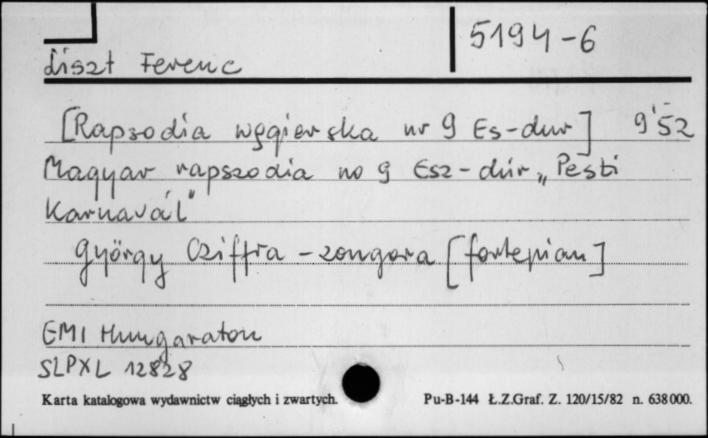 5194-6
Liszt Ferenc
[Rapsodia węgierska nr 9 Es-dur] 9'52
Magyar rapszodia no 9 Esz-dúr „Pesti
Karnavál"
György Cziffra - zongora [fortepian]
EMI Hungaraton
SLPXL 12828
Karta katalogowa wydawnictw ciągłych i zwartych. Pu-B-144 Ł.Z.Graf. Z. 120/15/82 n. 638000.